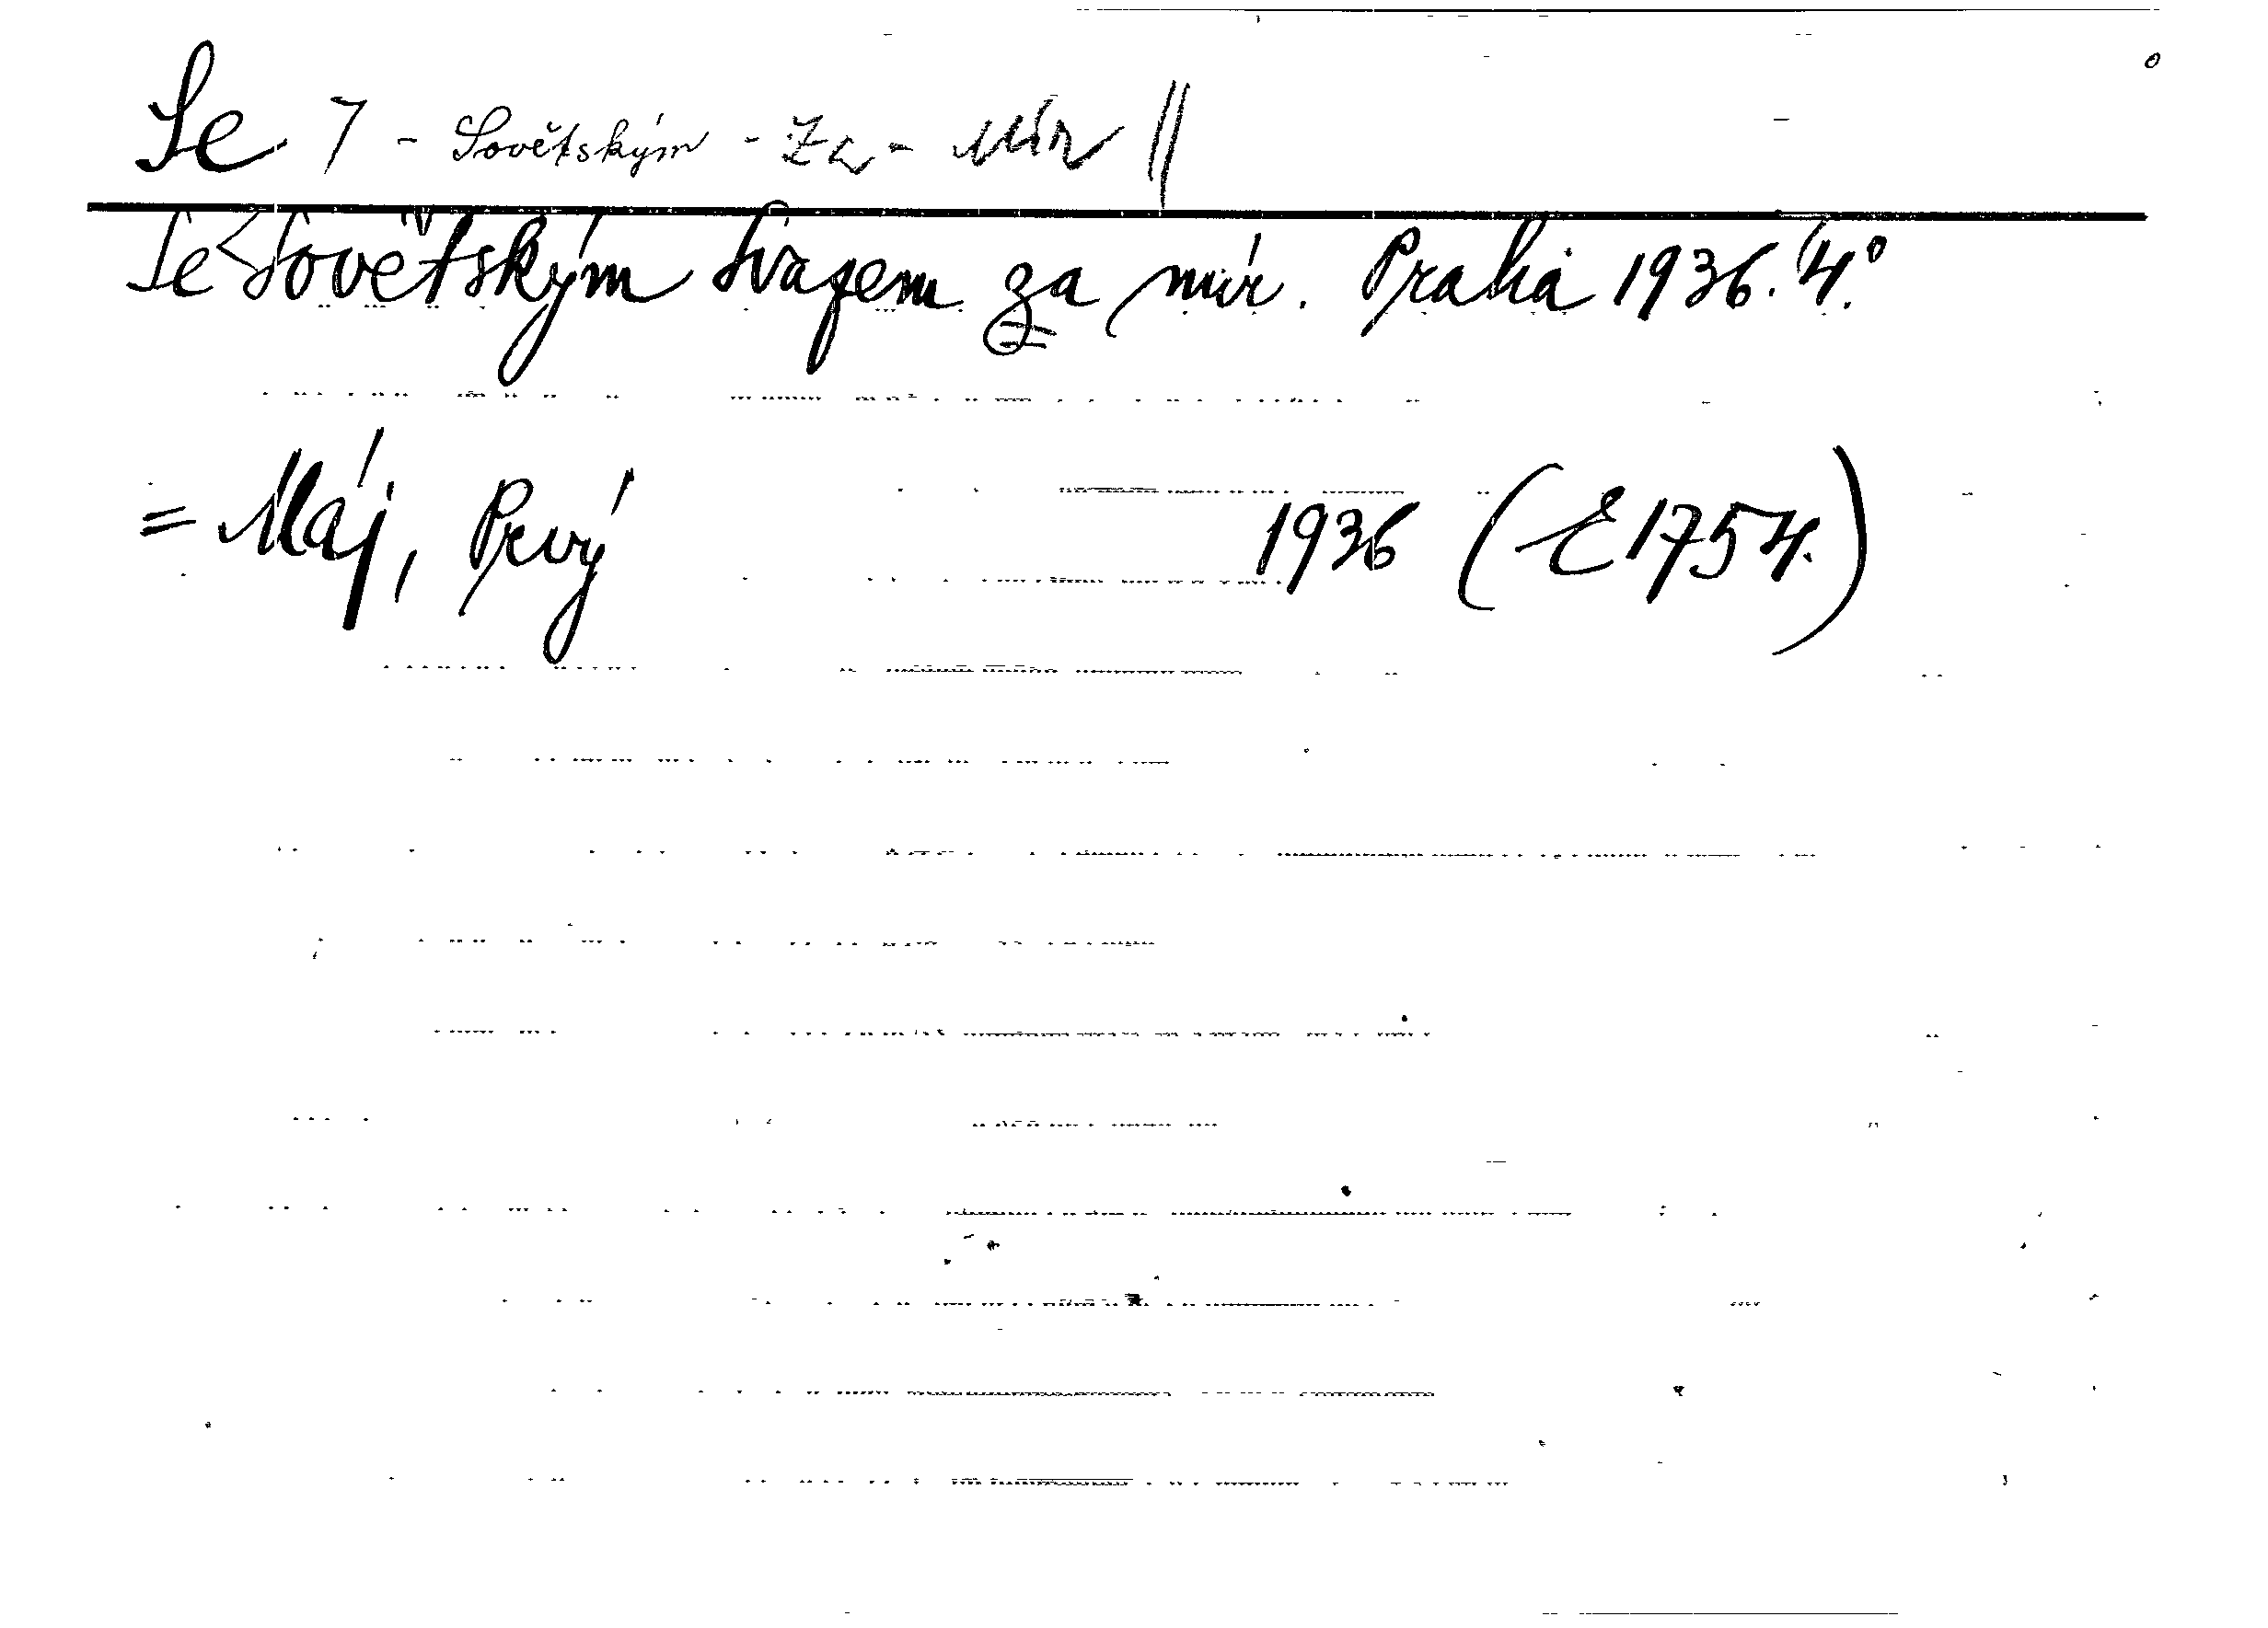 Se 7 - Sovětským - Za - Mír ||
Se Sovětským Svazem za mír. Praha 1936. 4.°
= Máj, Prvý 1936 (E 1754.)